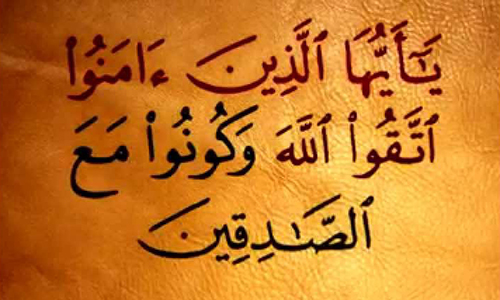 يَـٰٓأَيُّهَا ٱلَّذِينَ ءَامَنُوا۟
ٱتَّقُوا۟ ٱللَّهَ وَكُونُوا۟ مَعَ
ٱلصَّـٰدِقِينَ